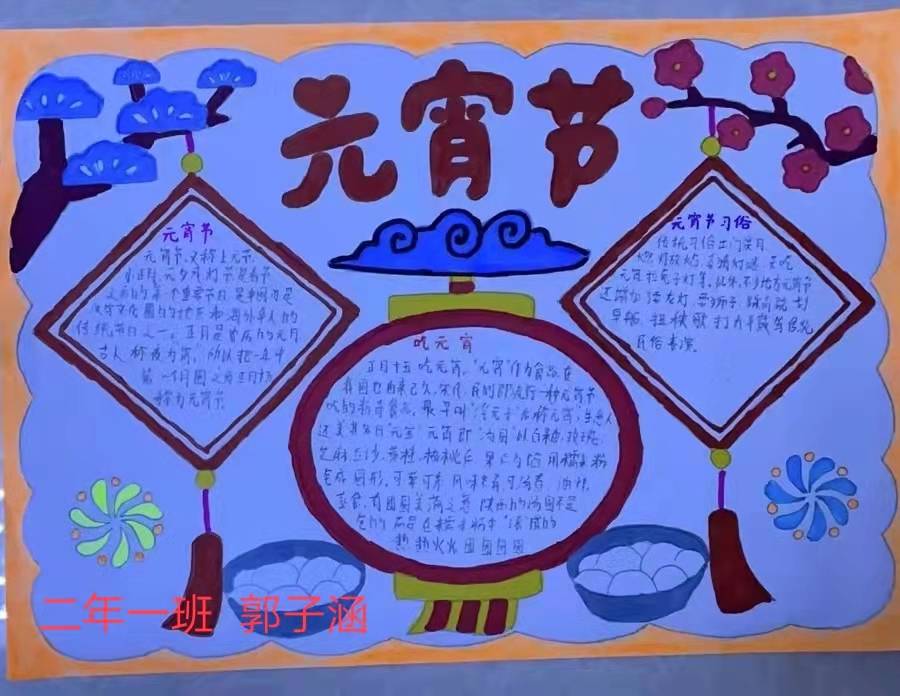 元宵节
元宵节
元宵节,又称上元节,
小正月、元夕或灯节,是春节
之后的第一个重要节日,是中国也是
汉字文化圈的地区和海外华人的
传统节日之一。正月是农历的元月
古人称夜为宵,所以把一年中
第一个月圆之夜正月十五
称为元宵节
元宵节习俗
传统习俗出门赏月、
燃灯放焰、喜猜灯谜、共吃
元宵拉兔子灯等。此外,不少地方元宵节
还增加了耍龙灯、耍狮子、踩高跷、划
旱船、扭秧歌、打太平鼓等传统
民俗表演。
吃元宵
正月十五吃元宵,"元宵"作为食品,在
我国也由来已久。宋代,民间即流行一种元宵节
吃的新奇食品。最早叫"浮元子"后称"元宵",生意人
还美其名曰"元宝"。元宵即"汤圆"以白糖、玫瑰、
芝麻、豆沙、黄桂、核桃仁、果仁
用糯米粉
包成圆形,可荤可素,风味各异。可汤煮、油炸、
蒸食,有团圆美满之意。陕西的汤圆不是
包的,而是在糯米粉中"滚"成的
热热火火,团团圆圆
二年一班 郭子涵